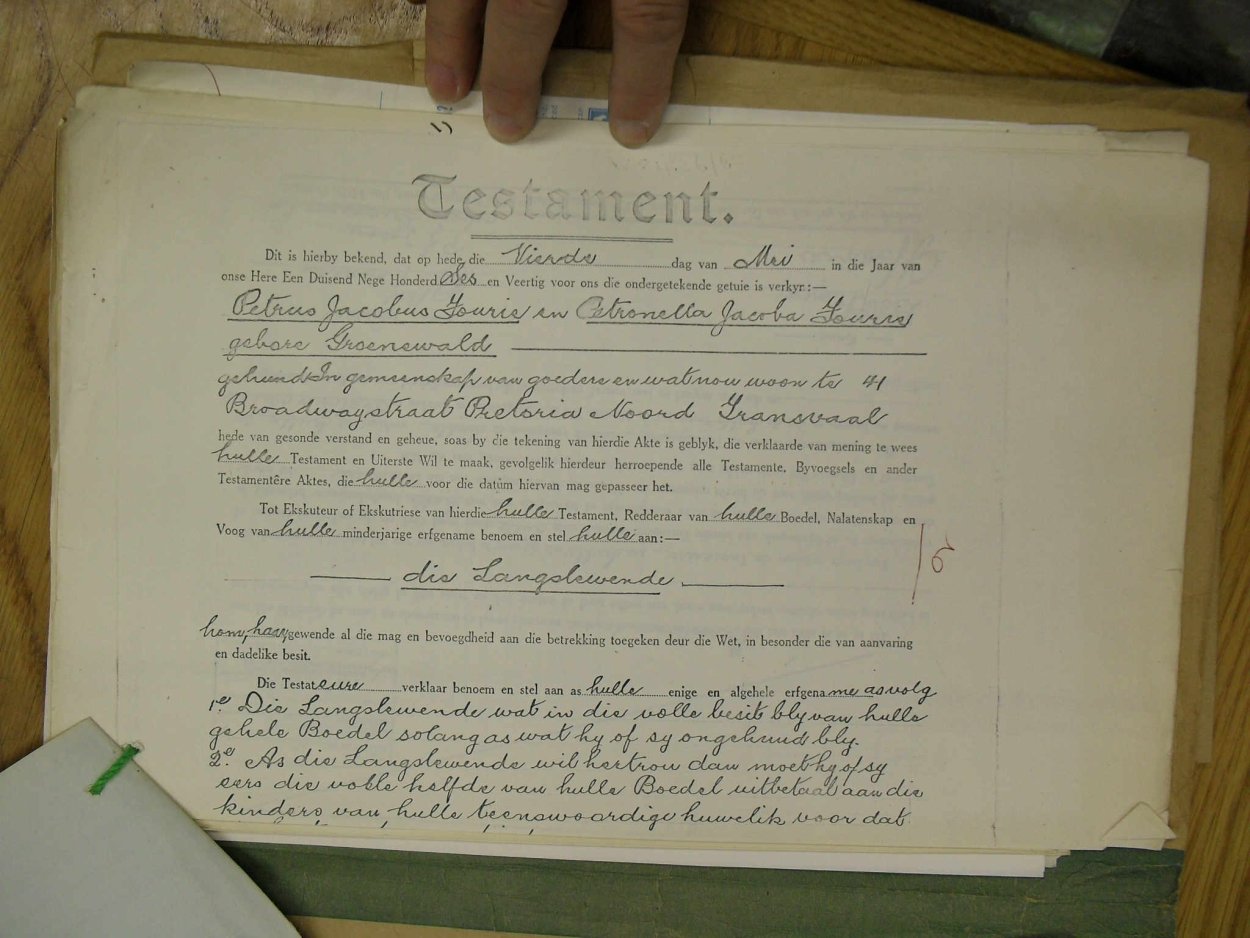 Testament.
Dit is hierby bekend, dat op hede die Vierde dag van Mei in die Jaar van
onse Here Een Duisend Nege Honderd Ses en Veertig voor ons die ondergetekende getuie is verkyr:—
Petrus Jacobus Fourie en Petronella Jacoba Fourie
gebore Groenewald
gehuwd In gemeenskap van goedere en wat nou woon te 41
Broadwaystraat Pretoria Noord Transvaal
hede van gesonde verstand en geheue, soas by die tekening van hierdie Akte is geblyk, die verklaarde van mening te wees
hulle Testament en Uiterste Wil te maak, gevolgelik hierdeur herroepende alle Testamente, Byvoegsels en ander
Testamentêre Aktes, die hulle voor die datum hiervan mag gepasseer het.
Tot Ekskuteur of Ekskutriese van hierdie hulle Testament, Redderaar van hulle Boedel, Nalatenskap en
Voog van hulle minderjarige erfgename benoem en stel hulle aan:—
die Langslewende
hom, haar, gewende al die mag en bevoegdheid aan die betrekking toegeken deur die Wet, in besonder die van aanvaring
en dadelike besit.
Die Testateure verklaar benoem en stel aan as hulle enige en algehele erfgename asvolg
1e Die Langslewende wat in die volle besit bly van hulle
gehele Boedel solang as wat hy of sy ongehuud bly.
2e. As die Langslewende wil hertrou dan moet hy of sy
eers die volle helfde van hulle Boedel uitbetaal aan die
kinders van hulle teenswoordige huwelik voor dat